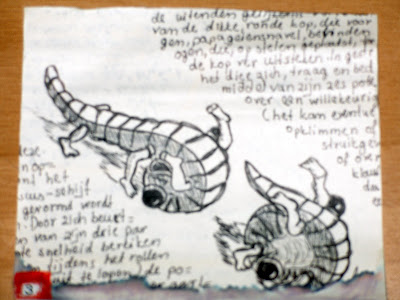 de uiteinden
van de dikke, ronde kop, die voor
gen, papagaaiensnavel, bevinden
ogen, die, op stelen geplaatst,
de kop ver uitsteken. In gestr
het dier zich, traag en bed
middel van zijn zes pote
over een willekeurig
(het kan eventue
opklimmen of
struikgew
of over
klau
da
es
deze
n op=
nt het
us-schijf
gevormd wordt
. Door zich beurt=
n van zijn drie par
te snelheid bereiken
n tijdens het rollen
uit te lopen) de po=
3